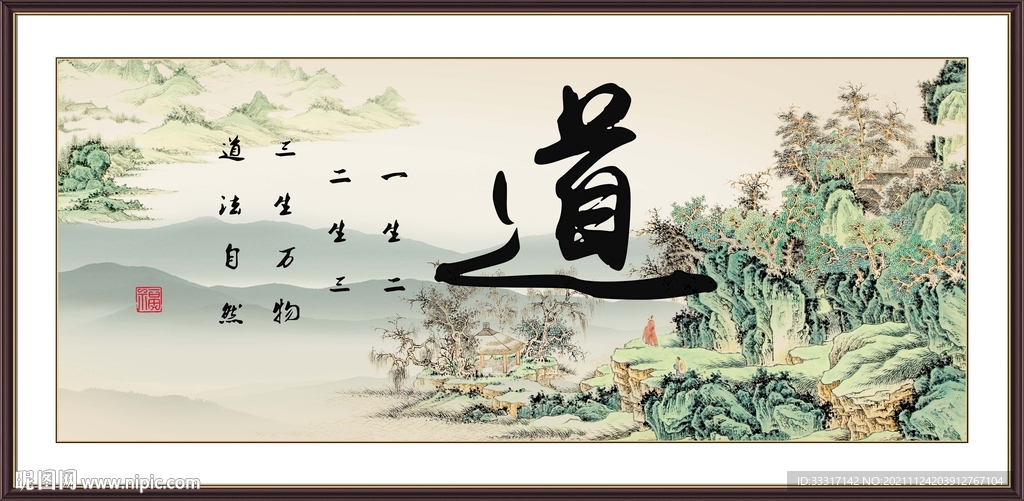 道
一生二
二生三
三生万物
道法自然
昵图网 www.nipic.com
ID:33317142 NO:20211124203912767104